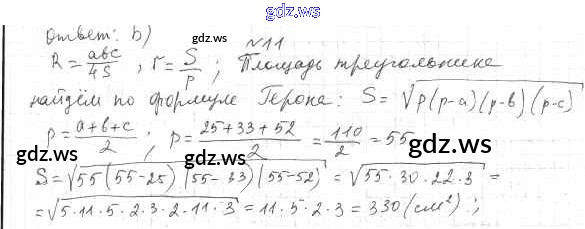 gdz.ws
Ответ: б)
gdz.ws
№11
R = abc/4S , r = S/p ; Площадь треугольника
найдём по формуле Герона: S = √p(p-a)(p-b)(p-c)
p = a+b+c/2 ; p = 25+33+52/2 = 110/2 = 55
gdz.ws
gdz.ws
gdz.ws
S = √55(55-25)(55-33)(55-52) = √55·30·22·3 =
= √5·11·5·2·3·2·11·3 = 11·5·2·3 = 330 (см²);
gdz.ws
gdz.ws